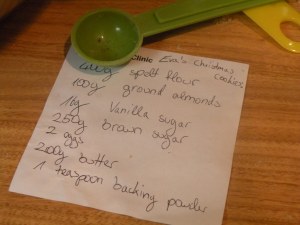 Clinic Eva's Christmas cookies
spelt flour
100g ground almonds
Vanilla sugar
250g brown sugar
2 eggs
200g butter
1 teaspoon backing powder